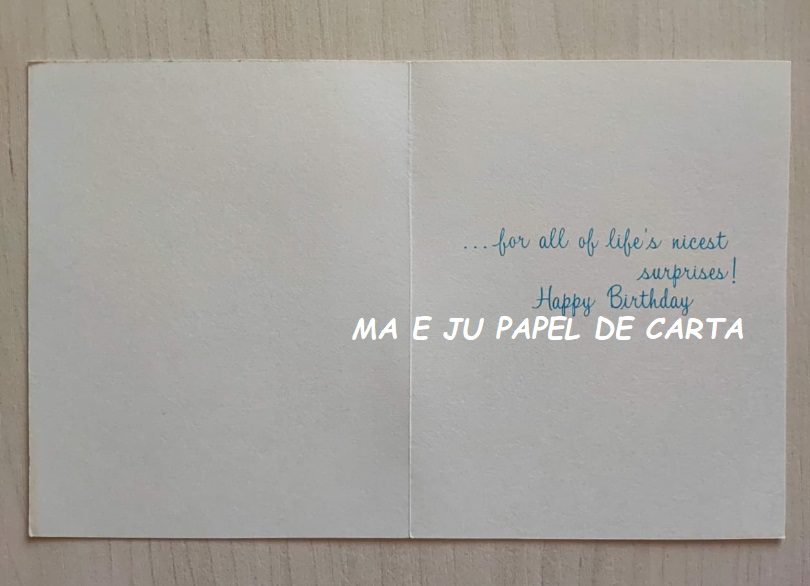 ...for all of life's nicest
surprises!
Happy Birthday
MA E JU PAPEL DE CARTA